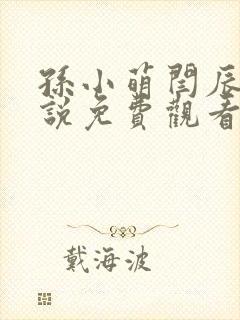 孫小萌閆辰
說免費觀看
戴海波